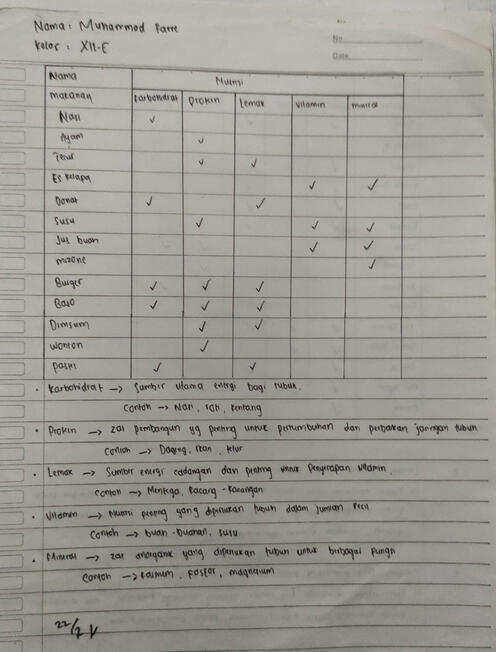 Nama : Muhammad Farre
Kelas : XII-E
No.
Date.
Nama makanan | Nutrisi
Karbohidrat | Protein | Lemak | Vitamin | mineral
Nasi ✓
Ayam ✓
Telur ✓ ✓
Es kelapa ✓ ✓
Donat ✓ ✓
Susu ✓ ✓ ✓
Jus buah ✓ ✓
mizone ✓
Burger ✓ ✓ ✓
Baso ✓ ✓ ✓
Dimsum ✓ ✓
Wonton ✓
✓ ✓
• Karbohidrat → Sumber utama energi bagi tubuh.
Contoh → Nasi, roti, kentang
• Protein → zat pembangun yg penting untuk pertumbuhan dan perbaikan jaringan tubuh
Contoh → Daging, ikan, telur
• Lemak → Sumber energi cadangan dan penting untuk penyerapan vitamin.
Contoh → Mentega, kacang-kacangan
• Vitamin → Nutrisi penting yang diperlukan tubuh dalam jumlah kecil
Contoh → buah-buahan, susu
• Mineral → zat anorganik yang diperlukan tubuh untuk berbagai fungsi
Contoh → kalsium, fosfor, magnesium
22/2